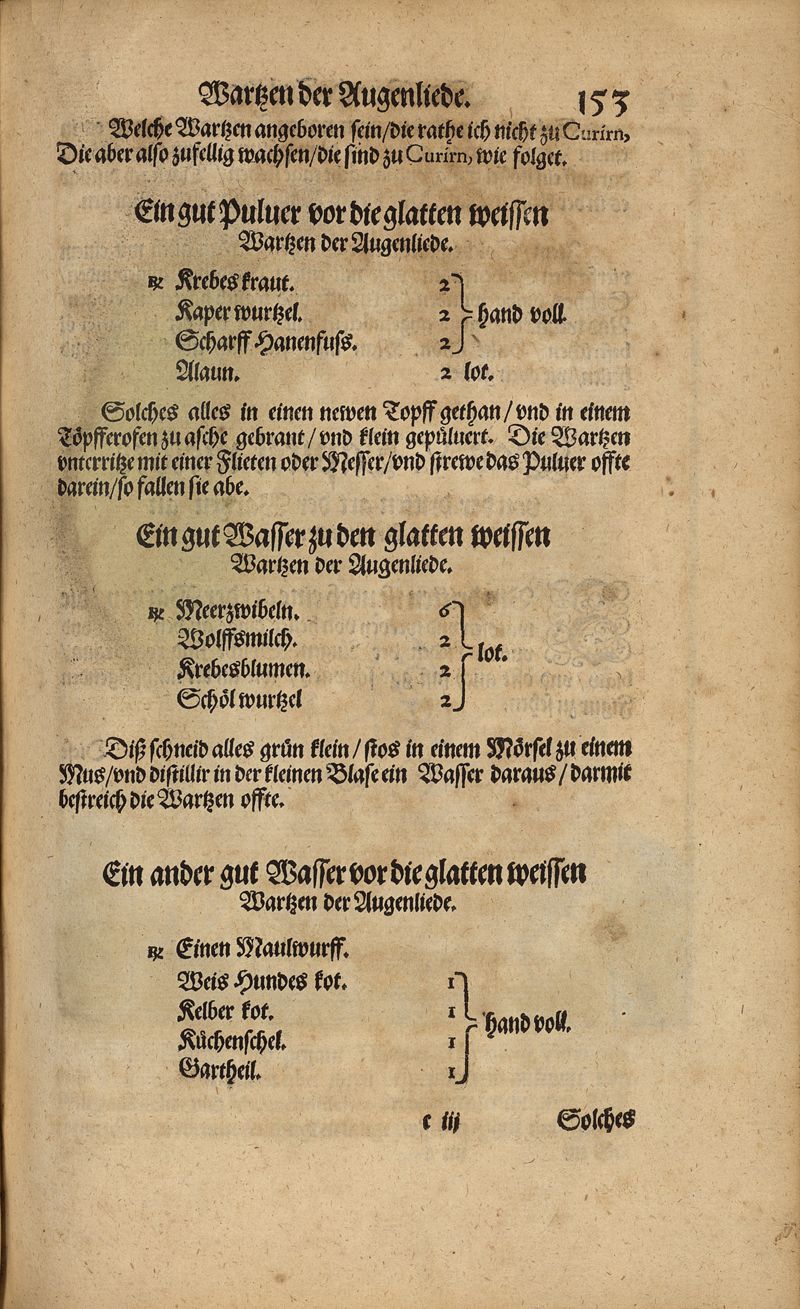 Wartzen der Augenliede. 153
Welche Wartzen angeboren sein/die rathe ich nicht zu Curirn,
Die aber also zufellig wachsen/die sind zu Curirn, wie folget.
Ein gut Puluer vor die glatten weissen
Wartzen der Augenliede.
℞ Krebeskraut. 2
Kaper wurtzel. 2 hand voll.
Scharff Hanenfuss. 2
Alaun. 2 lot.
Solches alles in einen newen Topff gethan/vnd in einem
Töpfferofen zu asche gebrant/vnd klein gepůluert. Die Wartzen
vnterritze mit einer Flieten oder Messer/vnd strewe das Puluer offte
darein/so fallen sie abe.
Ein gut Wasser zu den glatten weissen
Wartzen der Augenliede.
℞ Meerzwibeln. 6
Wolffsmilch. 2
lot.
Krebesblumen. 2
Schölwurtzel 2
Diß schneid alles grün klein/stos in einem Mörsel zu einem
Mus/vnd distillir in der kleinen Blase ein Wasser daraus/darmit
bestreich die Wartzen offte.
Ein ander gut Wasser vor die glatten weissen
Wartzen der Augenliede.
℞ Einen Maulwurff.
Weis Hundes kot. 1
Kelber kot. 1
hand voll.
Küchenschel. 1
Gartheil. 1
c iij Solches